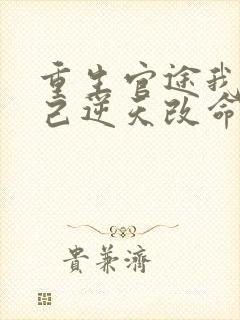 重生官途我
己逆天改命
貴兼濟